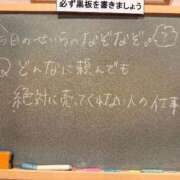 必ず黒板を書きましょう
今日のせいらのなぞなぞ
Q どんなに頼んでも
絶対に売ってくれない人の仕事
?